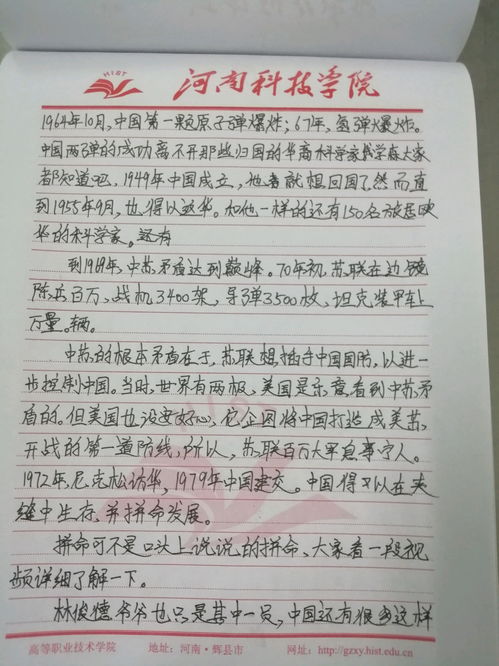 HIST
河南科技学院
1964年10月,中国第一颗原子弹爆炸;67年,氢弹爆炸。
中国两弹的成功离不开那些归国的华裔科学家钱学森大家
都知道吧,1949年中国成立,他者就想回国了然而直
到1955年9月,也得以返华。和他一样的还有150名旅居
华的科学家。还有
到1969年,中苏矛盾达到巅峰。70年初,苏联在边境
陈兵百万,战机3400架,导弹3500枚,坦克装甲车上
万量。辆。
中苏的根本矛盾在于,苏联想插手中国国防,以进一
步控制中国。当时,世界有两极,美国是乐意看到中苏矛
盾的。但美国也没安好心,它企图将中国打造成美苏
开战的第一道防线,所以,苏联百万大军息事宁人。
1972年,尼克松访华,1979年中国建交。中国得又以在夹
缝中生存,并拼命发展。
拼命可不是口头上说说的拼命,大家看一段视
频详细了解一下。
林俊德爷爷也只是其中一员,中国还有很多这样
高等职业技术学院 地址:河南·辉县市 网址:http://gzxy.hist.edu.cn